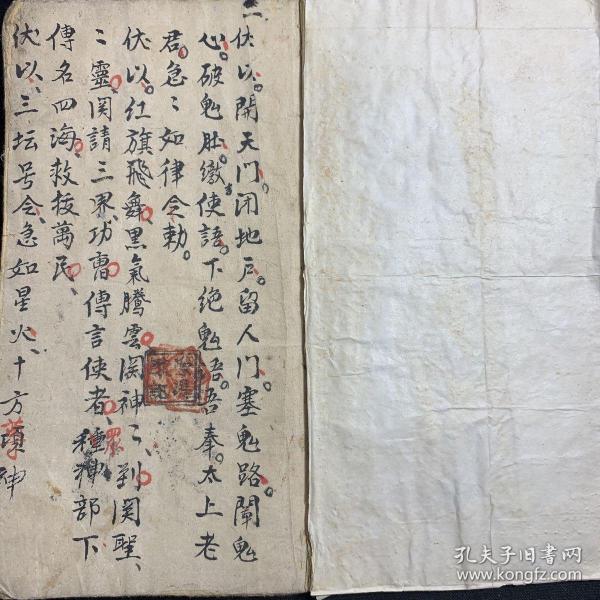 一伏以開天门闭地户。留人门塞鬼路闡鬼
心。破鬼肚。繳使語。下绝鬼吾。吾奉。太上老
君。急〻如律令勅。
伏以。红旗飛舞、黑氣騰雲関神〻、到関聖、
〻靈。関請三界、功曹傳言使者、種神部下
傳名四海。救拔萬民、
伏以、三坛号令、急如星火、十方真神
孔夫子旧书网
www.kongfz.com